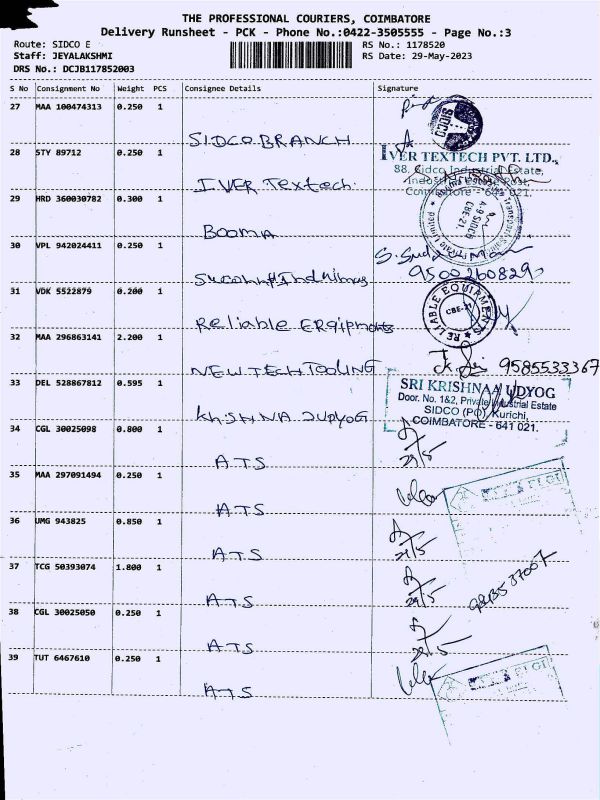 THE PROFESSIONAL COURIERS, COIMBATORE
Delivery Runsheet - PCK - Phone No.:0422-3505555 - Page No.:3
Route: SIDCO E RS No.: 1178520
Staff: JEYALAKSHMI RS Date: 29-May-2023
DRS No.: DCJB117852003
S No Consignment No Weight PCS Consignee Details Signature
27 MAA 100474313 0.250 1
SIDCO BRANCH
28 STY 89712 0.250 1
IVER TEXTECH PVT. LTD.,
88, Sidco Industrial Estate,
Industrial Estate Post,
Coimbatore - 641 021.
IVER Textech.
29 HRD 360030782 0.300 1
A-9 SIDCO
CBE-21.
Booma
30 VPL 942024411 0.250 1
9500260829
31 VDK 5522879 0.200 1
RELIABLE EQUIPMENTS
CBE-21
Reliable ERqipments
32 MAA 296863141 2.200 1
NEW TECH TOOLING 9585533367
33 DEL 528867812 0.595 1
SRI KRISHNAA UDYOG
Door. No. 1&2, Private Industrial Estate
SIDCO (PO), Kurichi,
COIMBATORE - 641 021.
34 CGL 30025098 0.800 1
ATS 29/5
35 MAA 297091494 0.250 1
ATS
36 UMG 943825 0.850 1
ATS 29/5
37 TCG 50393074 1.800 1
ATS 29/5
38 CGL 30025050 0.250 1
ATS 29/5
39 TUT 6467610 0.250 1
ELGI
ATS